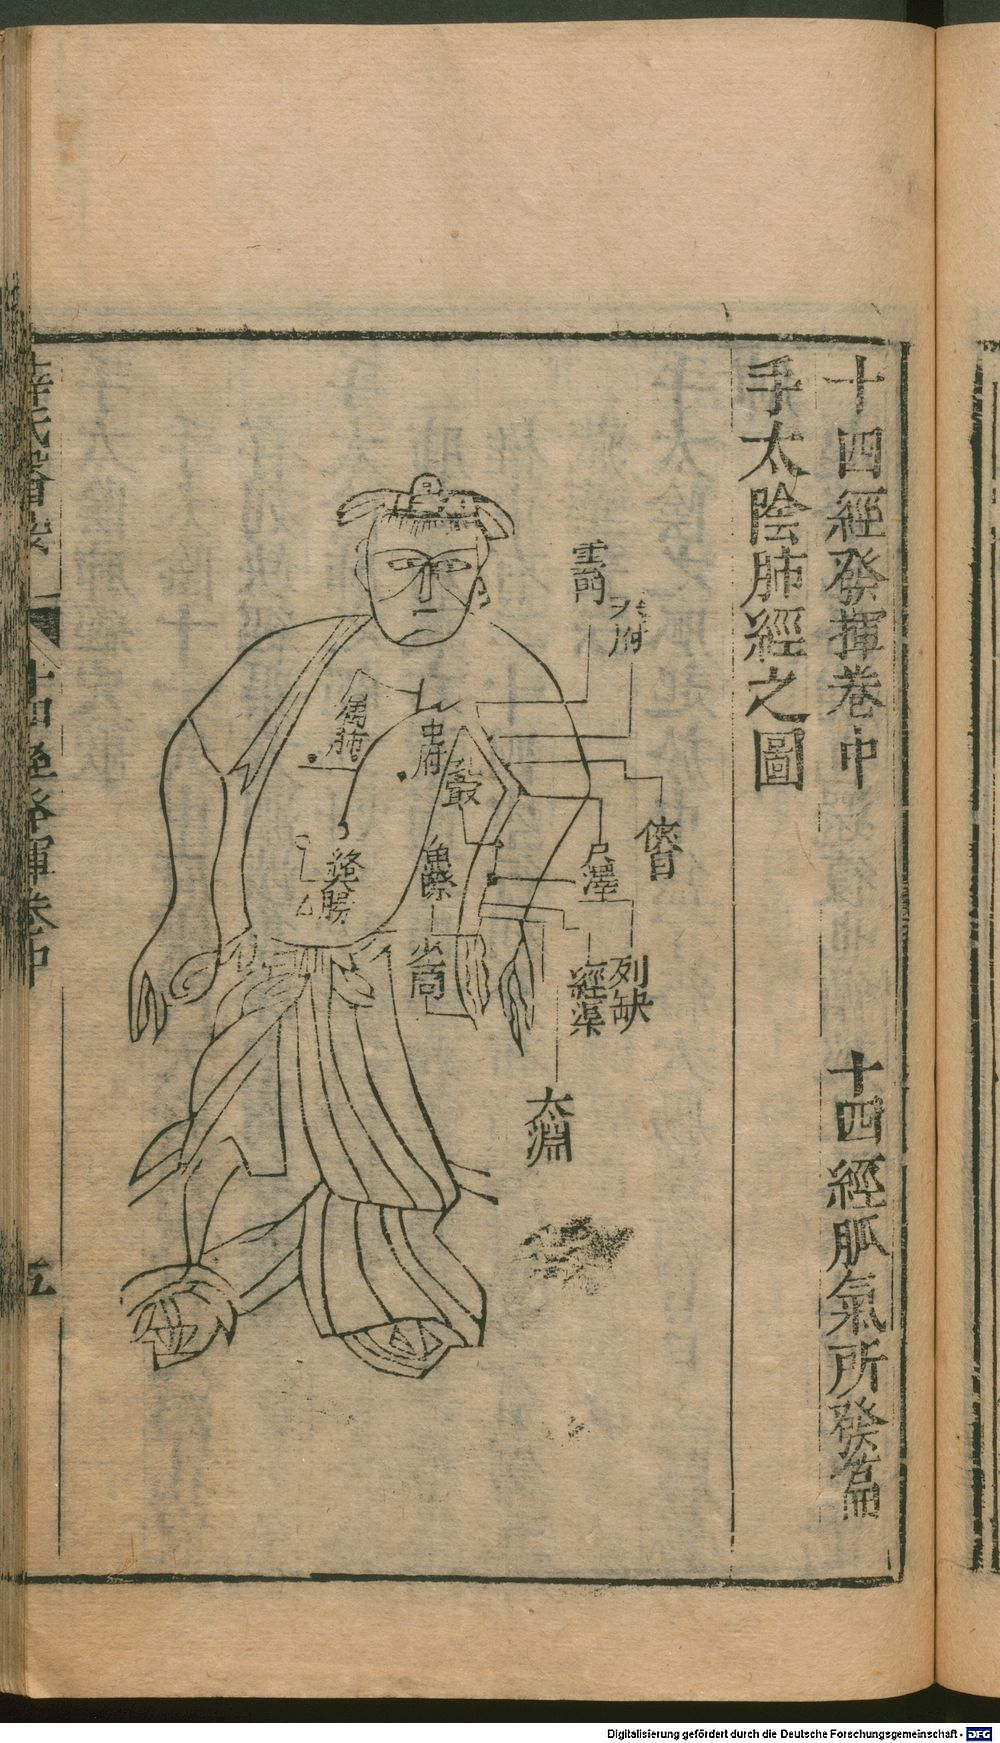 十四經發揮卷中
十四經脈氣所發篇
手太陰肺經之圖
雲門
天府
俠白
尺澤
列缺
經渠
太淵
中府
屬肺
魚際
少商
絡大腸
薛氏醫案
十四經發揮卷中
五
Digitalisierung gefördert durch die Deutsche Forschungsgemeinschaft - DFG